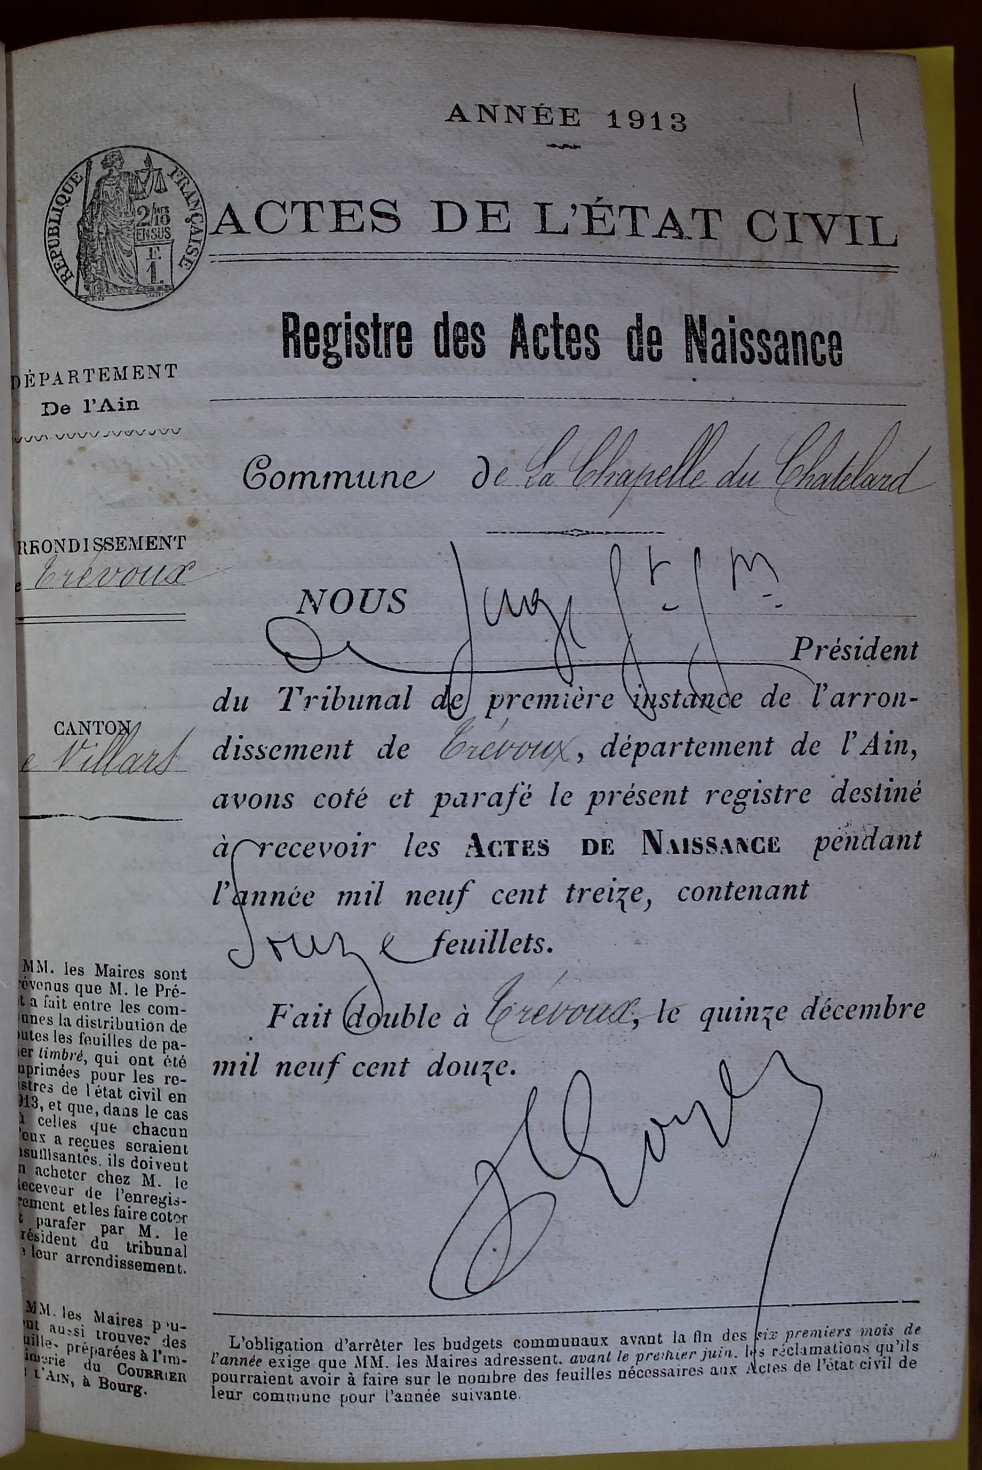 ANNÉE 1913
RÉPUBLIQUE FRANÇAISE
2/10
EN SUS
F.
1.
ACTES DE L'ÉTAT CIVIL
Registre des Actes de Naissance
DÉPARTEMENT
De l'Ain
RRONDISSEMENT
e Trévoux
CANTON
e Villars
MM. les Maires sont
évenus que M. le Pré-
t a fait entre les com-
unes la distribution de
utes les feuilles de pa-
er timbré, qui ont été
mprimées pour les re-
stres de l'état civil en
913, et que, dans le cas
celles que chacun
eux a reçues seraient
nsuffisantes, ils doivent
n acheter chez M. le
eceveur de l'enregis-
rement et les faire coter
t parafer par M. le
résident du tribunal
e leur arrondissement.
MM. les Maires p u-
nt aussi trouver des
uille- préparées à l'im-
imerie du COURRIER
L'AIN, à Bourg.
Commune de La Chapelle du Chatelard
NOUS Juge
Président
du Tribunal de première instance de l'arron-
dissement de Trévoux, département de l'Ain,
avons coté et parafé le présent registre destiné
à recevoir les ACTES DE NAISSANCE pendant
l'année mil neuf cent treize, contenant
douze feuillets.
Fait double à Trévoux, le quinze décembre
mil neuf cent douze.
L'obligation d'arrêter les budgets communaux avant la fin des six premiers mois de
l'année exige que MM. les Maires adressent, avant le premier juin, les réclamations qu'ils
pourraient avoir à faire sur le nombre des feuilles nécessaires aux Actes de l'état civil de
leur commune pour l'année suivante.